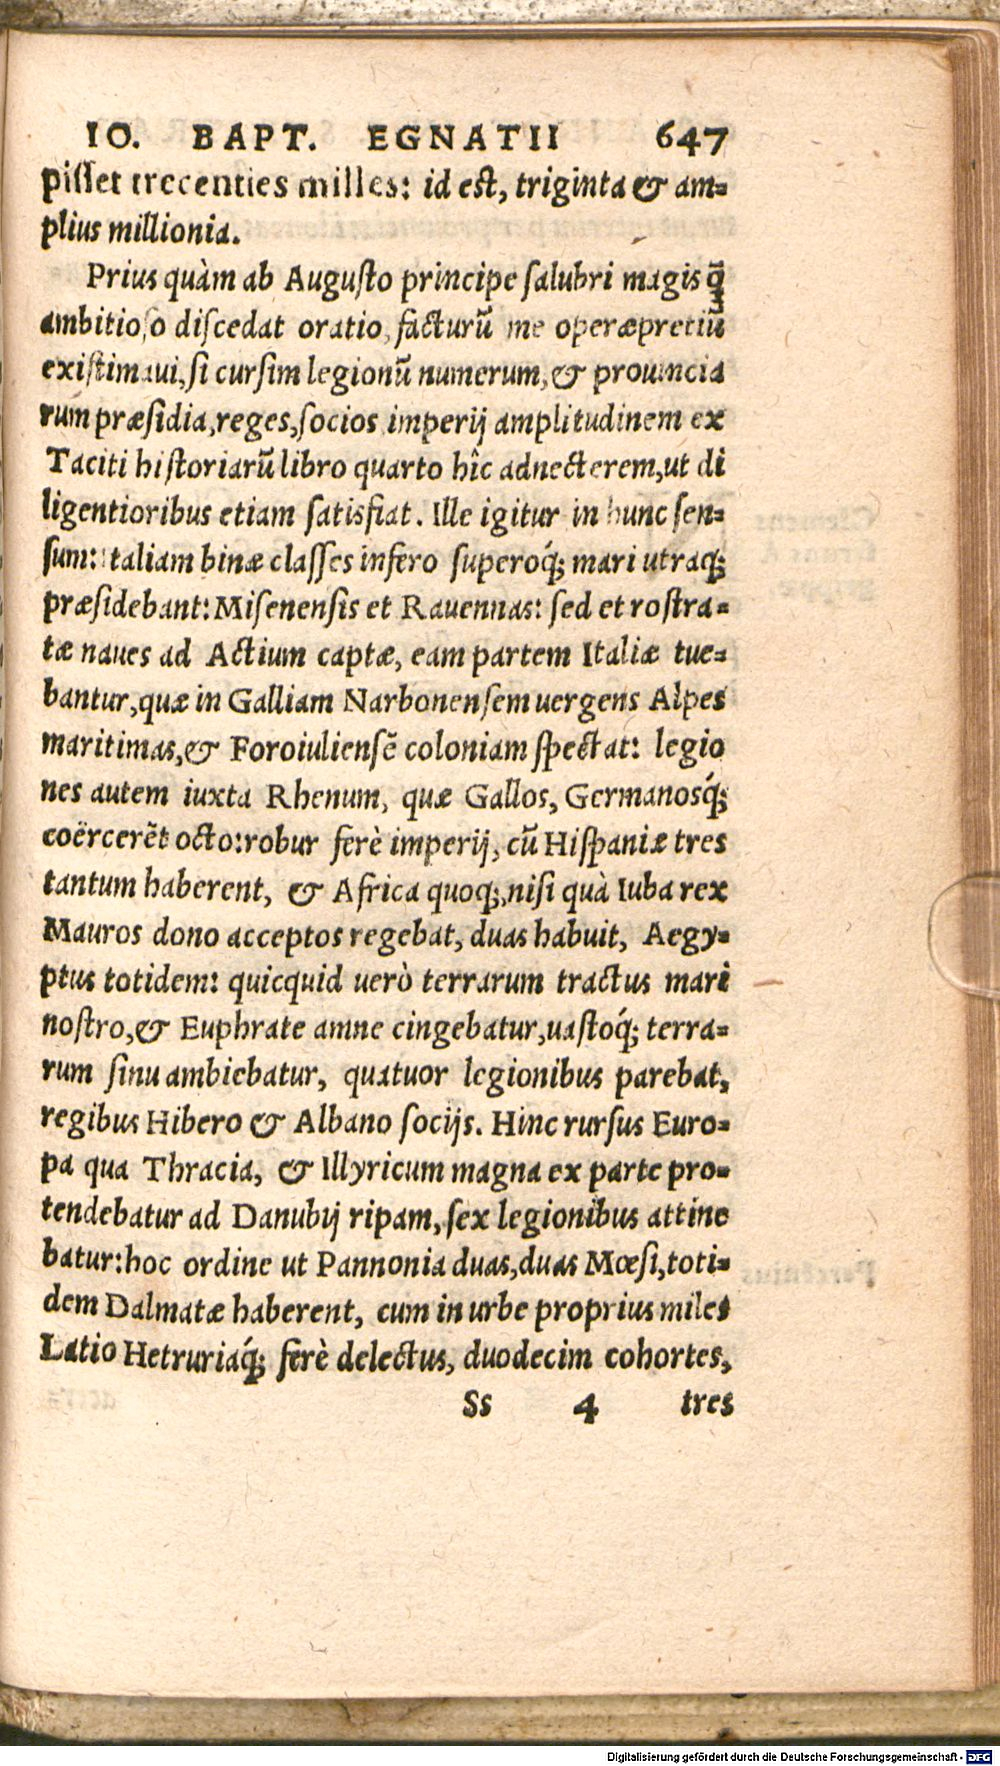 IO. BAPT. EGNATII 647
pisset trecenties milles: id est, triginta & am=
plius millionia.
Prius quàm ab Augusto principe salubri magis q̃
ambitioso discedat oratio, facturũ me operæpretiũ
existimaui, si cursim legionũ numerum, & prouincia
rum præsidia, reges, socios imperij amplitudinem ex
Taciti historiarũ libro quarto hîc adnecterem, ut di
ligentioribus etiam satisfiat. Ille igitur in hunc sen=
sum: Italiam binæ classes infero superoq́; mari utraq;
præsidebant: Misenensis et Rauennas: sed et rostra=
tæ naues ad Actium captæ, eam partem Italiæ tue=
bantur, quæ in Galliam Narbonensem uergens Alpes
maritimas, & Foroiuliensẽ coloniam spectat: legio
nes autem iuxta Rhenum, quæ Gallos, Germanosq́;
coërcerẽt octo: robur ferè imperij, cũ Hispaniæ tres
tantum haberent, & Africa quoq;, nisi quà Iuba rex
Mauros dono acceptos regebat, duas habuit, Aegy=
ptus totidem: quicquid uerò terrarum tractus mari
nostro, & Euphrate amne cingebatur, uastoq́; terra=
rum sinu ambiebatur, quatuor legionibus parebat,
regibus Hibero & Albano socijs. Hinc rursus Euro=
pa qua Thracia, & Illyricum magna ex parte pro=
tendebatur ad Danubij ripam, sex legionibus attine
batur: hoc ordine ut Pannonia duas, duas Mœsi, toti=
dem Dalmatæ haberent, cum in urbe proprius miles
Latio Hetruriaq́; ferè delectus, duodecim cohortes,
Ss 4 tres
Digitalisierung gefördert durch die Deutsche Forschungsgemeinschaft - DFG